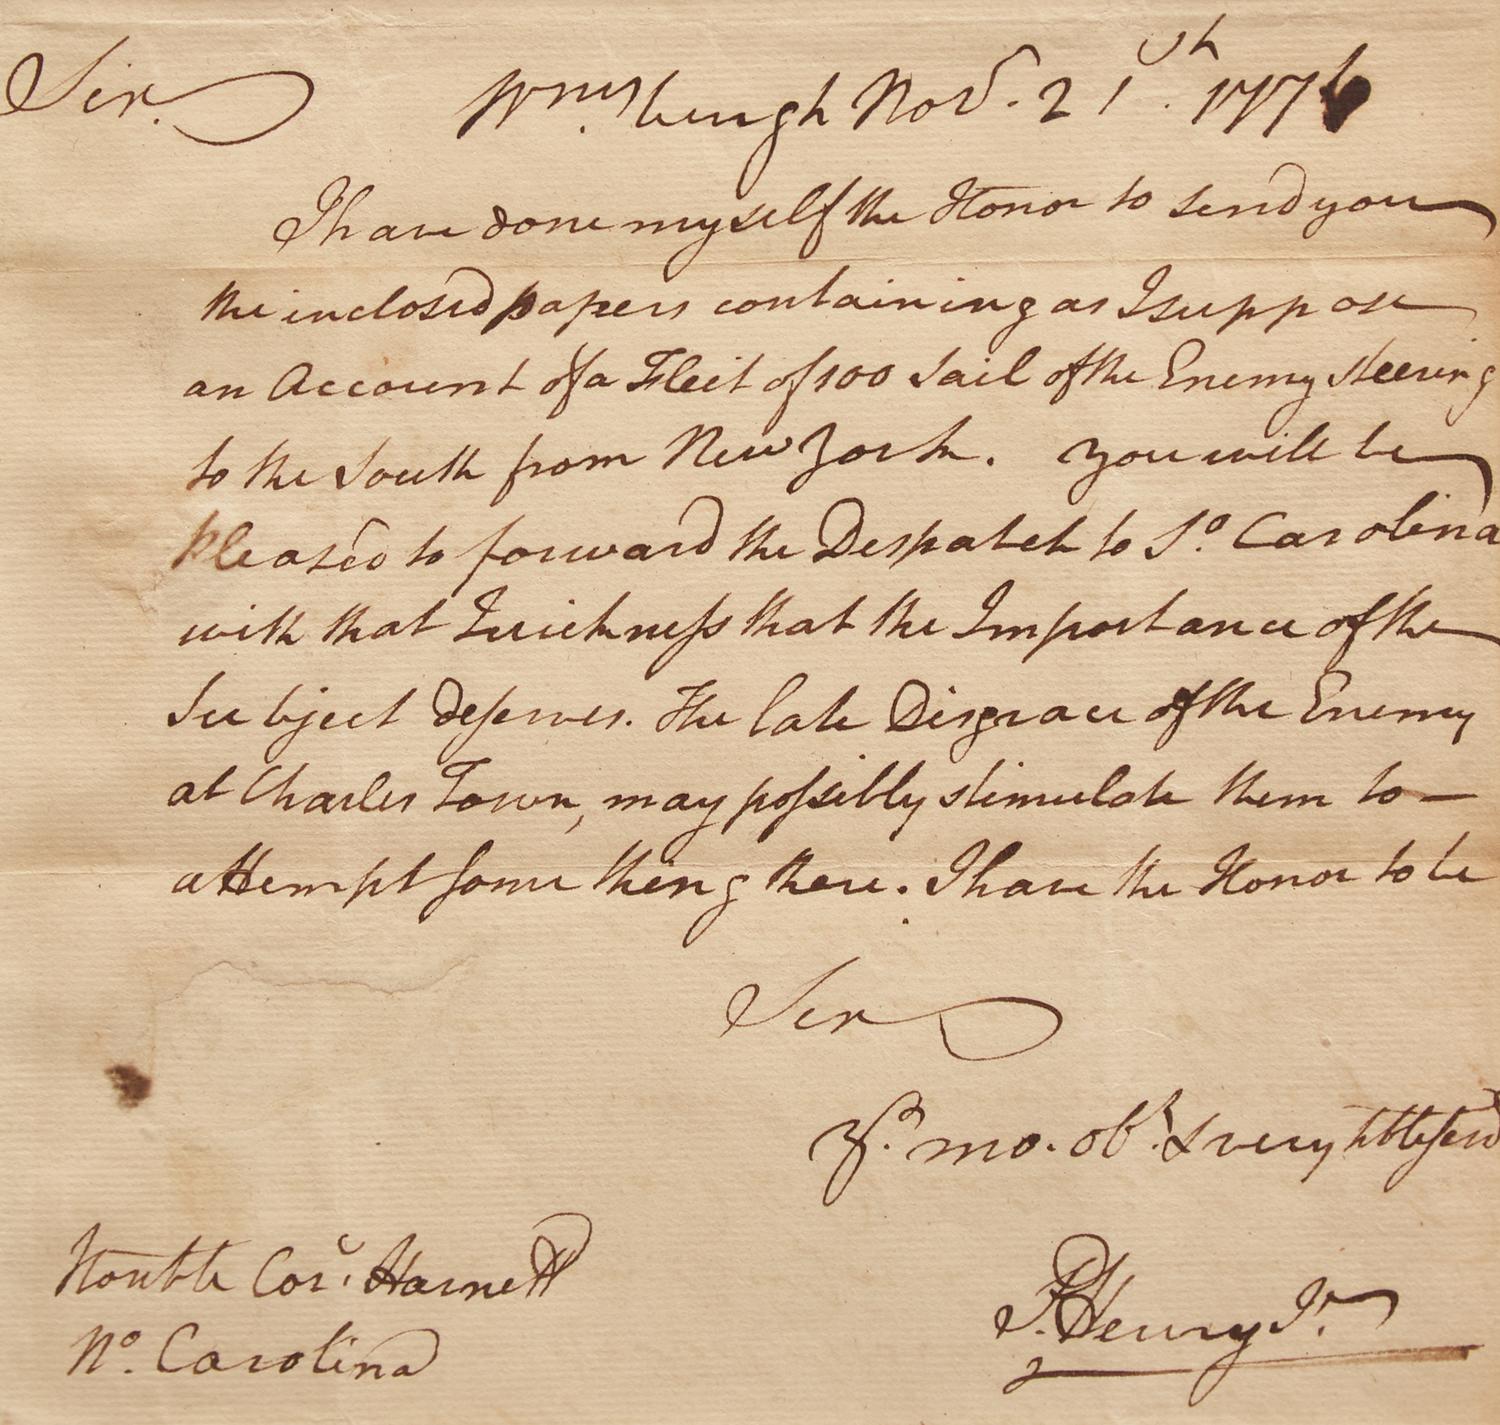 Sir. Wmsburgh Nov.r 21th. 1776
I have done myself the Honor to send you
the inclosed papers containing as I suppose
an Account of a Fleet of 100 Sail of the Enemy steering
to the South from New York. You will be
pleased to forward the Despatch to So. Carolina
with that Quickness that the Importance of the
Subject deserves. The late Disgrace of the Enemy
at Charles Town, may possibly stimulate them to —
attempt some thing there. I have the Honor to be
Sir
Yr. mo. obt. & very hble serv
P. Henry Jr.
Honble Cors. Harnett
No. Carolina